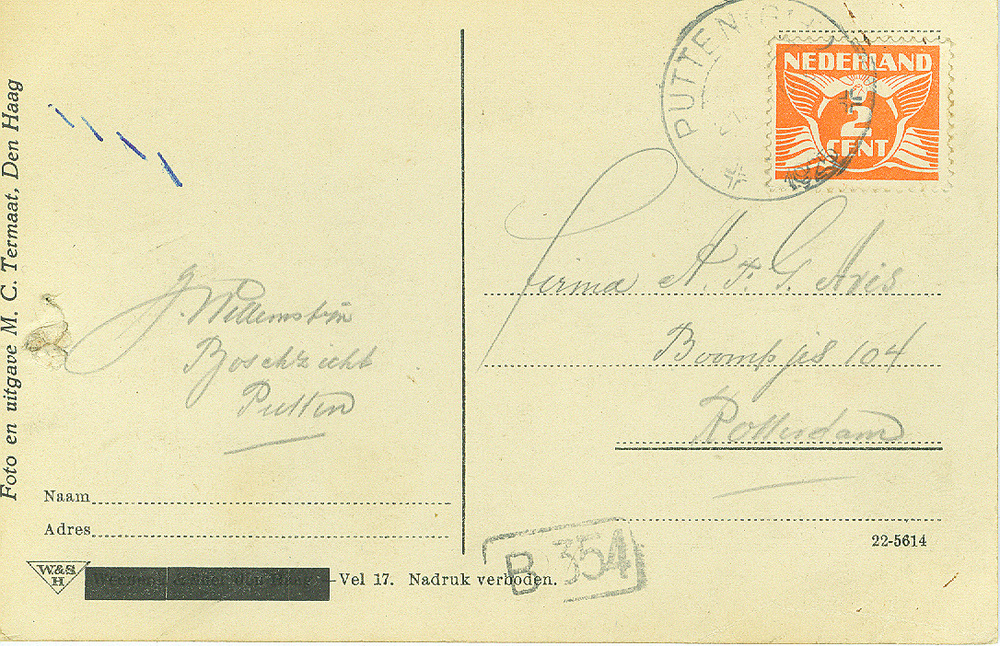 Foto en uitgave M. C. Termaat, Den Haag
PUTTEN
NEDERLAND
2
CENT
J. Willemstijn
Boschzicht
Putten
Firma A. & G. Aris
Boompjes 104
Rotterdam
Naam
Adres
22-5614
W&S
H
Vel 17. Nadruk verboden.
B 354